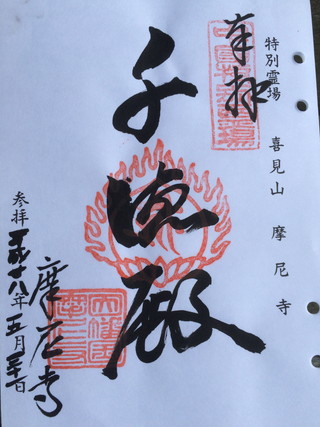 特別霊場 喜見山 摩尼寺
奉拝
千徳殿
摩尼寺
参拝 平成十八年五月三十一日